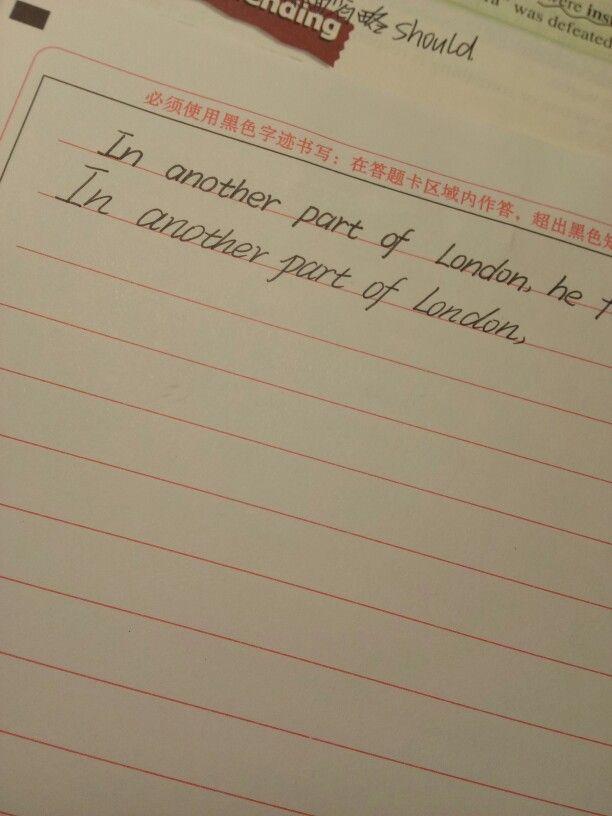 ending
省略 should
were ins
was defeated
必须使用黑色字迹书写：在答题卡区域内作答，超出黑色矩
In another part of London, he f
In another part of London,